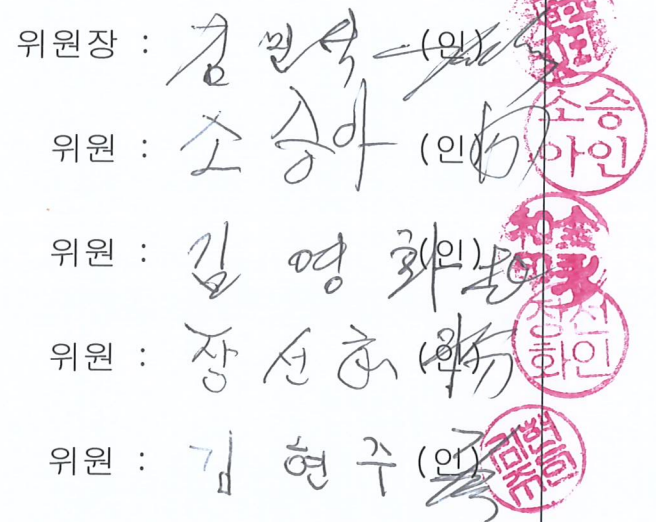 위원장 : 김 민석 (인)
위원 : 소 승아 (인) 소승아인
위원 : 김 영 화 (인)
위원 : 장 선화 (인) 장선화인
위원 : 김 현 주 (인)